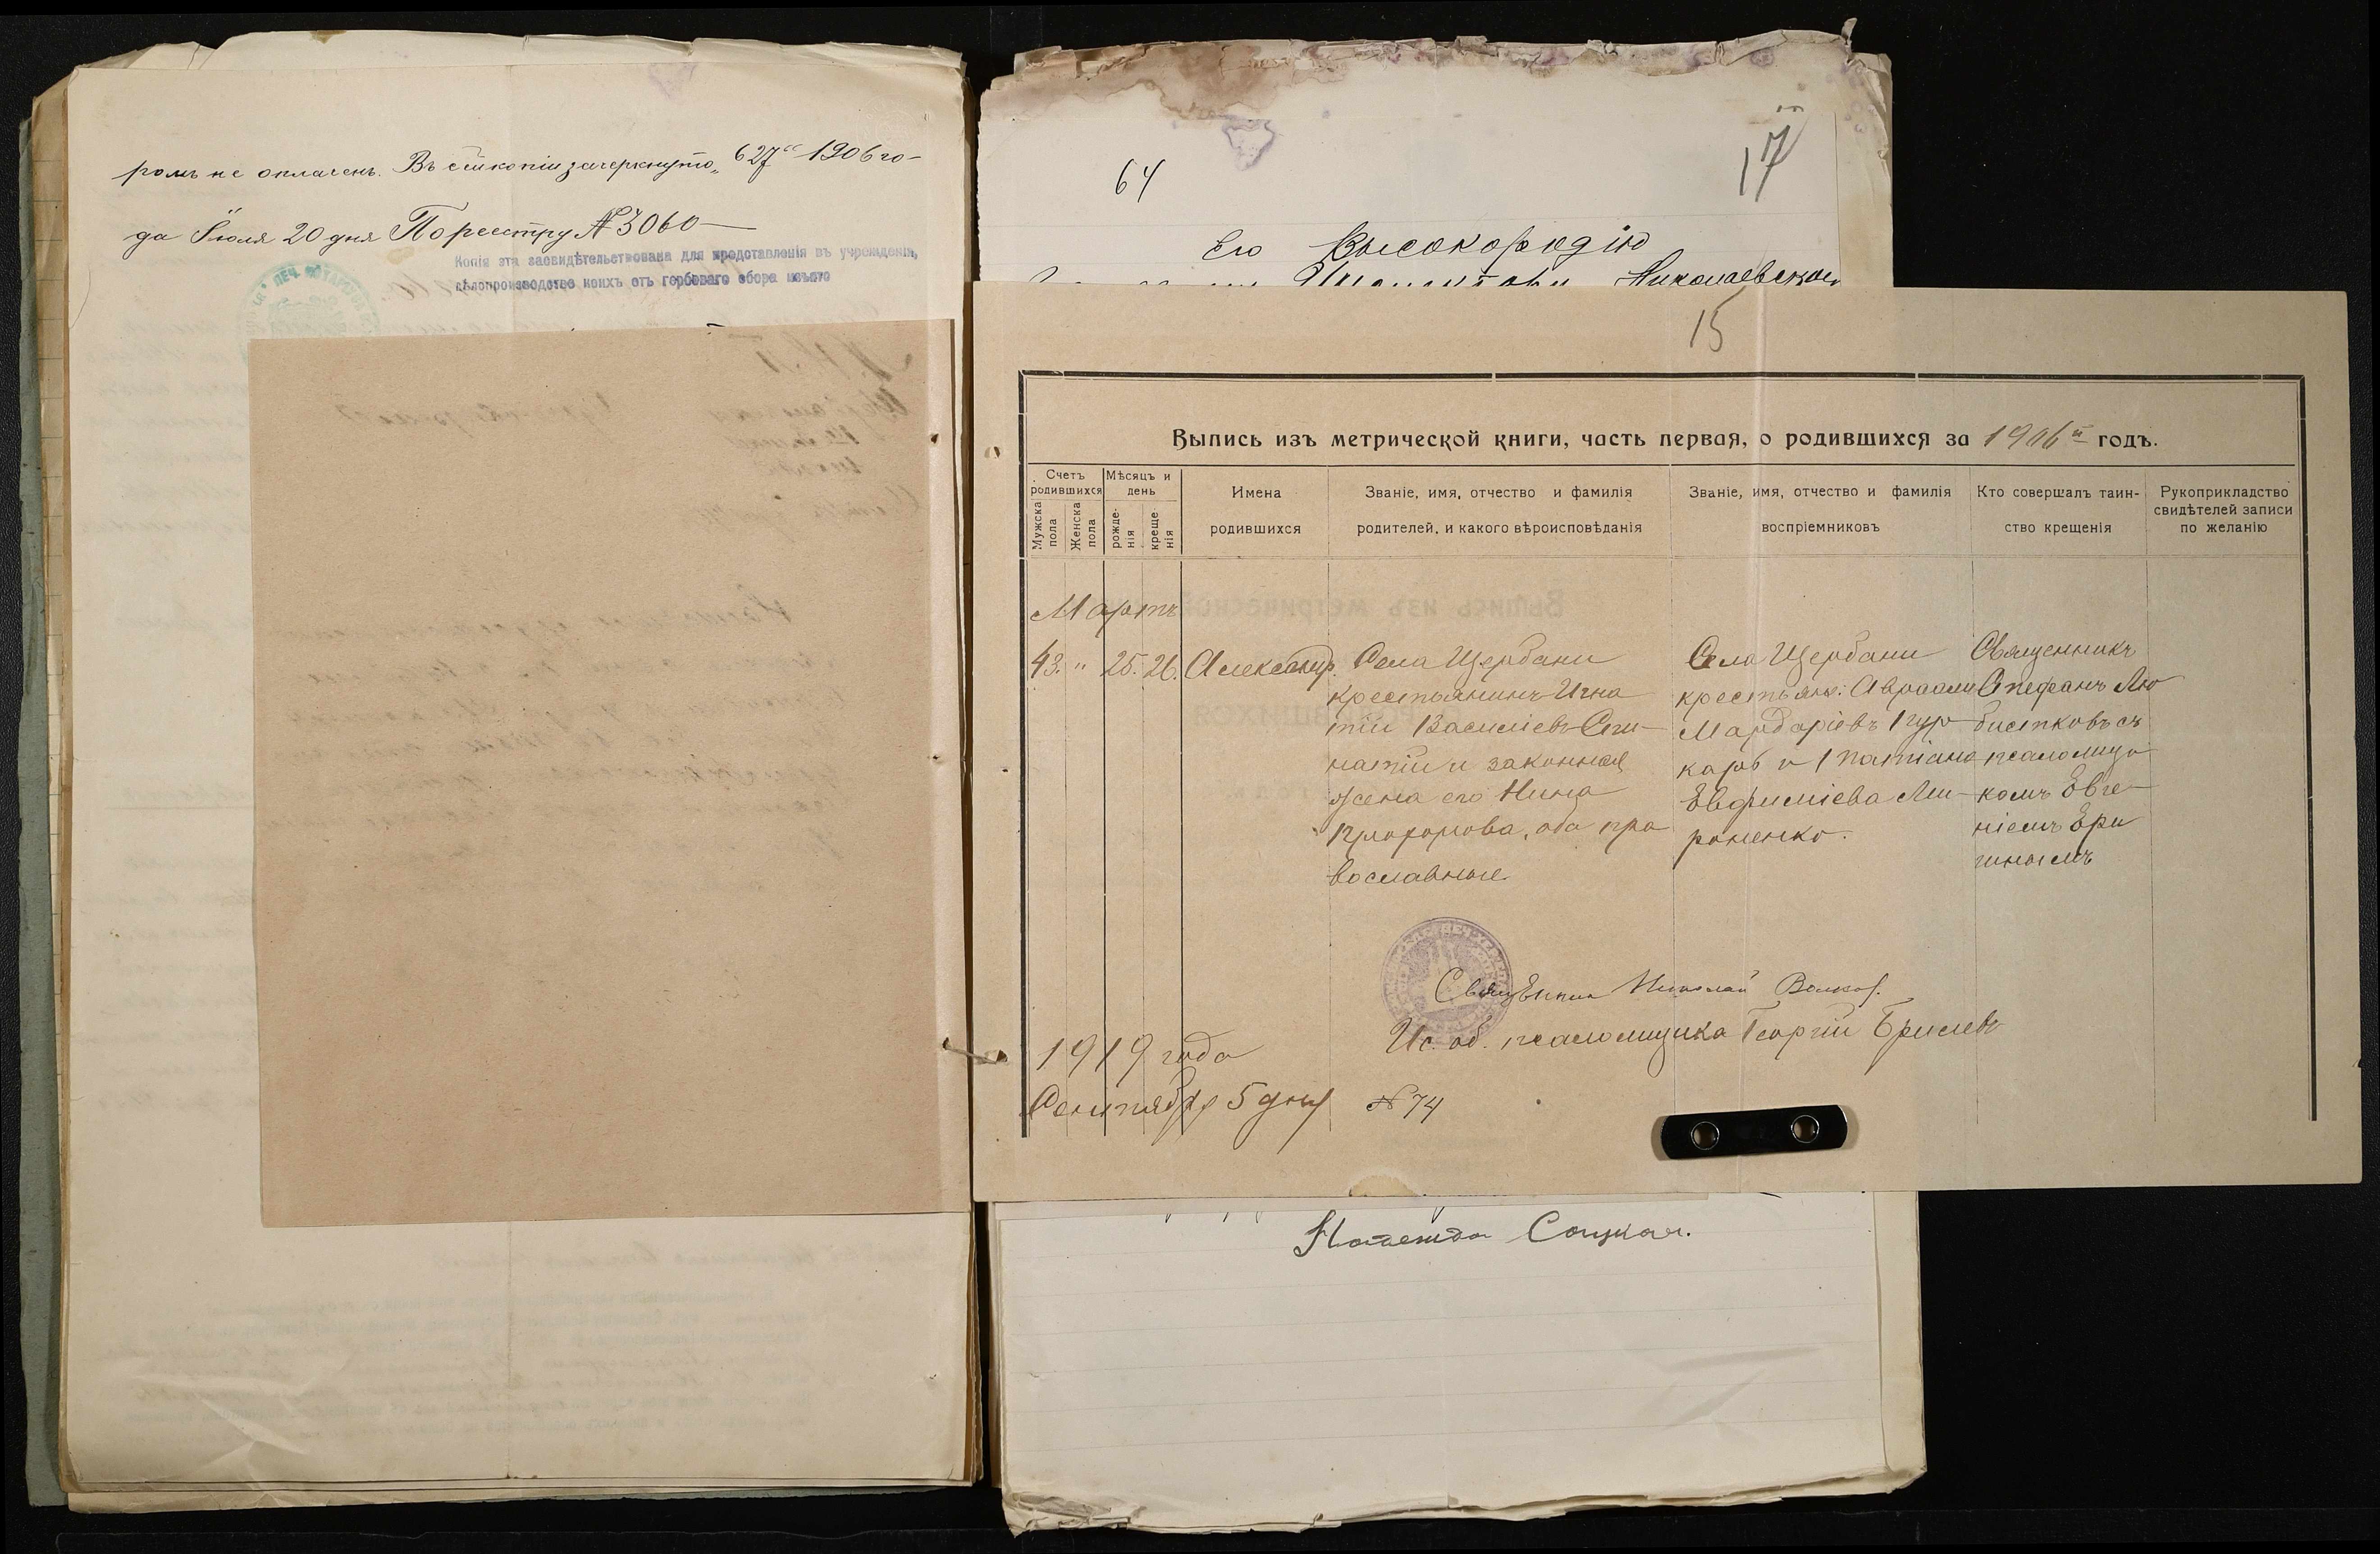 ромъ не оплаченъ. Въ сей копіи зачеркнуто „627“ 1906 го-
да Іюля 20 дня По реестру № 3060
Копія эта засвидѣтельствована для представленія въ учрежденія,
дѣлопроизводство коихъ отъ гербоваго сбора изъято
64
17
Его Высокородію
Николаевской
15
Выпись изъ метрической книги, часть первая, о родившихся за 1906й годъ.
Счетъ родившихся
Мужска пола
Женска пола
Мѣсяцъ и день
рожде-нія
креще нія
Имена
родившихся
Званіе, имя, отчество и фамилія
родителей, и какого вѣроисповѣданія
Званіе, имя, отчество и фамилія
воспріемниковъ
Кто совершалъ таин-
ство крещенія
Рукоприкладство
свидѣтелей записи
по желанію
Мартъ
43. " 25. 26. Александр.
Села Щербани
крестьянинъ Игна
тій Василіевъ
и законная
жена его Нина
оба пра
вославные.
Села Щербани
крестьян: Авраам
Мардаріевъ
и
Евфиміева Ми-
роненко.
Священникъ
Стефанъ Лю
бистковъ съ
псаломщи
комъ Евге-
ніемъ
Священникъ Николай Волков.
Ис. об. псаломщика Георгій
1919 года
Сентября 5 дня № 74
Надежда Соцкая.